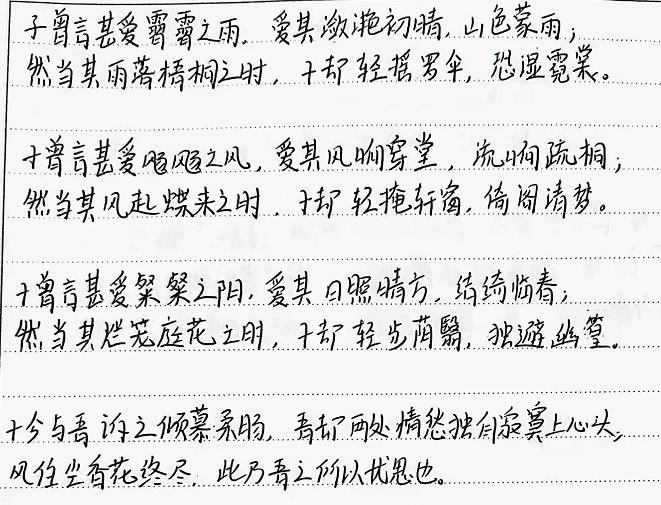 子曾言甚爱霏霏之雨，爱其潋滟初晴，山色蒙雨；
然当其雨落梧桐之时，子却轻摇罗伞，恐湿霓裳。
子曾言甚爱飔飔之风，爱其风响穿堂，流响疏桐；
然当其风起蝶来之时，子却轻掩轩窗，倚阁清梦。
子曾言甚爱粲粲之阳，爱其日照晴方，结绮临春；
然当其烂笼庭花之时，子却轻步荫翳，独避幽篁。
子今与吾诉之倾慕柔肠，吾却两处情愁独自寂寞上心头，
风住尘香花终尽，此乃吾之所以忧思也。